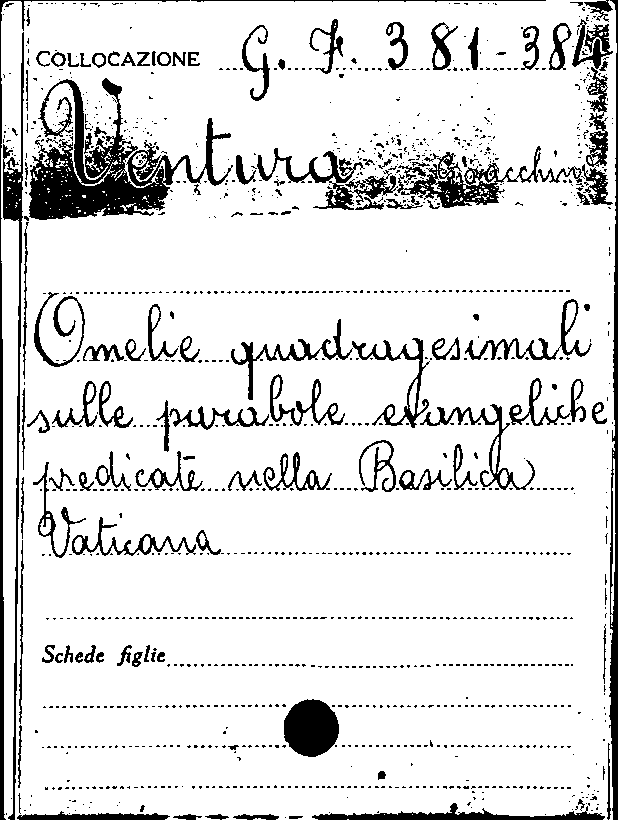 COLLOCAZIONE G. F. 381-384
Ventura, Gioacchino
Omelie quadragesimali
sulle parabole evangeliche
predicate nella Basilica
Vaticana
Schede figlie